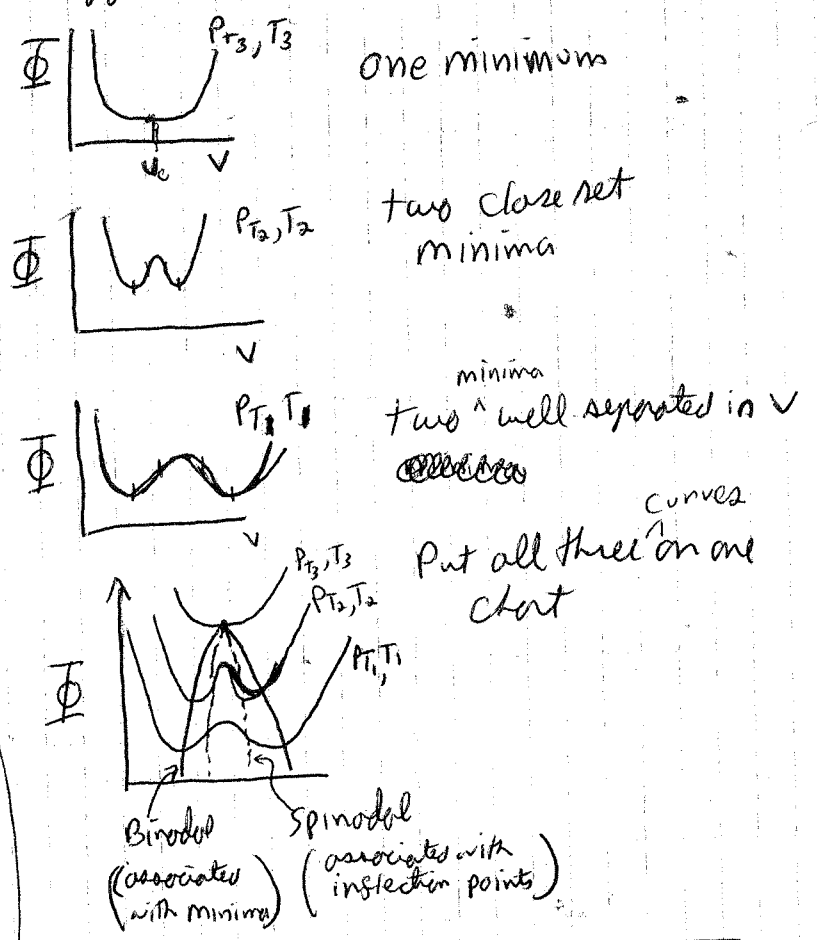 Φ P_{T3}, T_3 one minimum
v_c V
Φ P_{T2}, T_2 two close set
minima
V
minima
Φ P_{T1} T_1 two ^ well separated in V
V
curves
Put all three ^ on one
chart
P_{T3}, T_3
P_{T2}, T_2
P_{T1}, T_1
Φ
Binodal
(associated
with minima)
Spinodal
(associated with
inflection points)